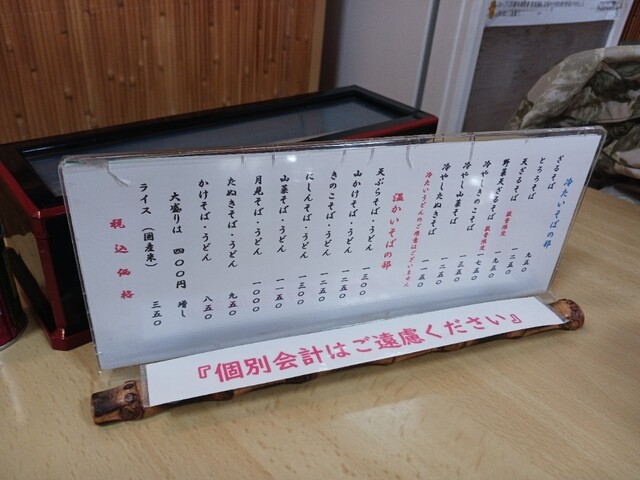 冷たいそばの部
ざるそば 九五〇
とろろそば 一二五〇
天ざるそば 数量限定 一九五〇
野菜天ざるそば 数量限定 一七五〇
冷やしきのこそば 一三五〇
冷やし山菜そば 一二五〇
冷やしたぬきそば 一一五〇
冷たいうどんのご用意はございません
温かいそばの部
天ぷらそば・うどん 一三〇〇
山かけそば・うどん 一二五〇
きのこそば・うどん 一二五〇
にしんそば・うどん 一三〇〇
山菜そば・うどん 一一五〇
月見そば・うどん 一〇〇〇
たぬきそば・うどん 九五〇
かけそば・うどん 八五〇
大盛りは 四〇〇円 増し
ライス（国産米） 三五〇
税込価格
『個別会計はご遠慮ください』